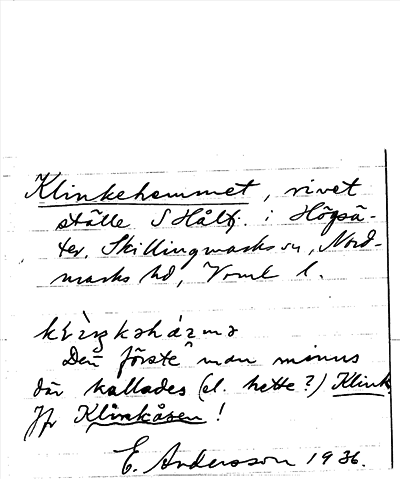 Klinkehemmet, rivet
ställe S Hålt. i Högsä-
ter, Skillingmarks sn, Nord-
marks hd, Vrml l.
Den förste man minns
där kallades (el. hette?) Klink
Jfr Klinkåsen!
E. Andersson 1936.